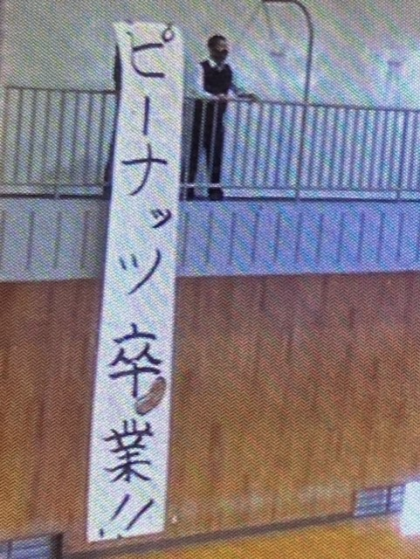 ピーナッツ卒業!!